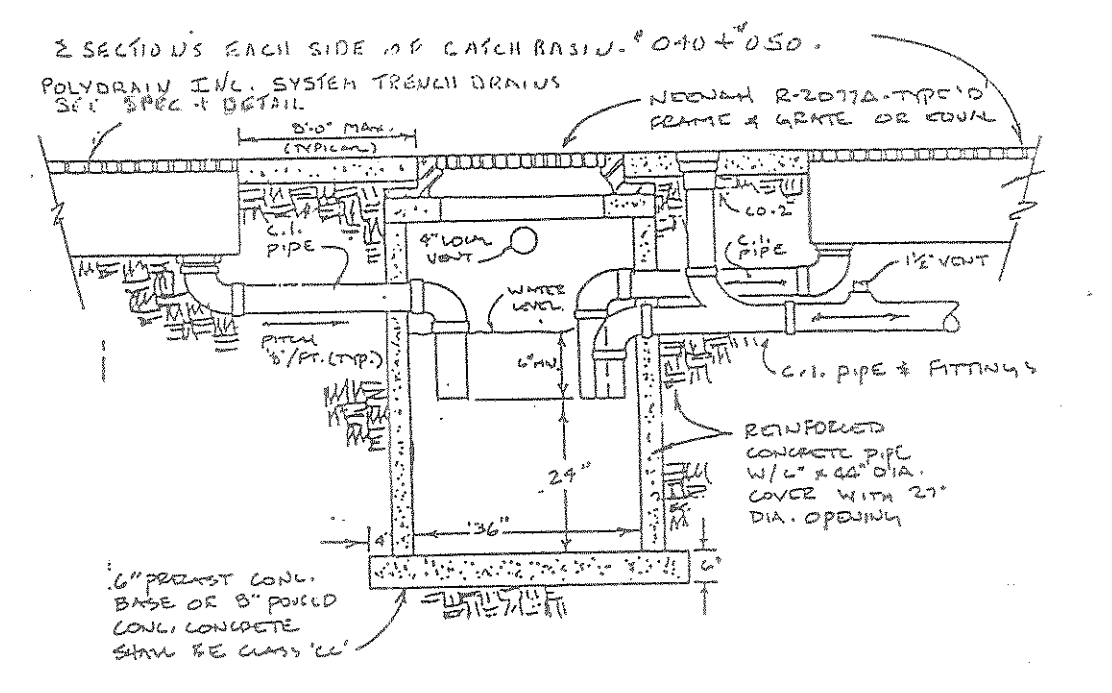 2 SECTIONS EACH SIDE OF CATCH BASIN. #040 + #050.
POLYDRAIN INC. SYSTEM TRENCH DRAINS
SEE SPEC + DETAIL
8'-0" MAX.
(TYPICAL)
NEENAH R-2077A-TYPE 'D'
FRAME & GRATE OR EQUAL
C.I.
PIPE
4" LOCAL
VENT
CO.2"
C.I.
PIPE
1½" VENT
WATER
LEVEL
PITCH
⅛"/FT. (TYP.)
6" MIN.
C.I. PIPE & FITTINGS
REINFORCED
CONCRETE PIPE
W/6" x 44" DIA.
COVER WITH 27"
DIA. OPENING
24"
36"
4"
6"
6" PRECAST CONC.
BASE OR 8" POURED
CONC. CONCRETE
SHALL BE CLASS 'CC'